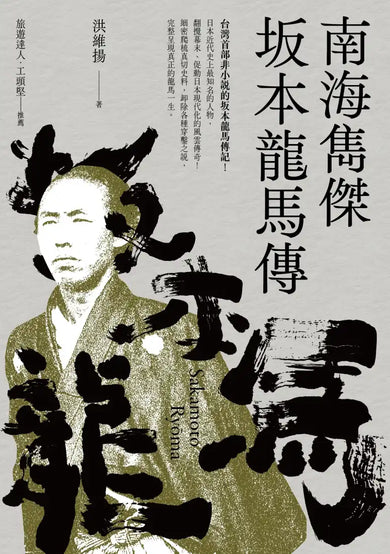 南海雋傑
坂本龍馬傳
台灣首部非小說的坂本龍馬傳記！
日本近代史上最知名的人物，
翻攪幕末、促動日本現代化的風雲傳奇！
細密爬梳真切史料，卸除各種穿鑿之說，
完整呈現真正的龍馬一生。
洪維揚——著
旅遊達人·工頭堅——推薦
坂本
龍馬
Sakamoto
Ryoma